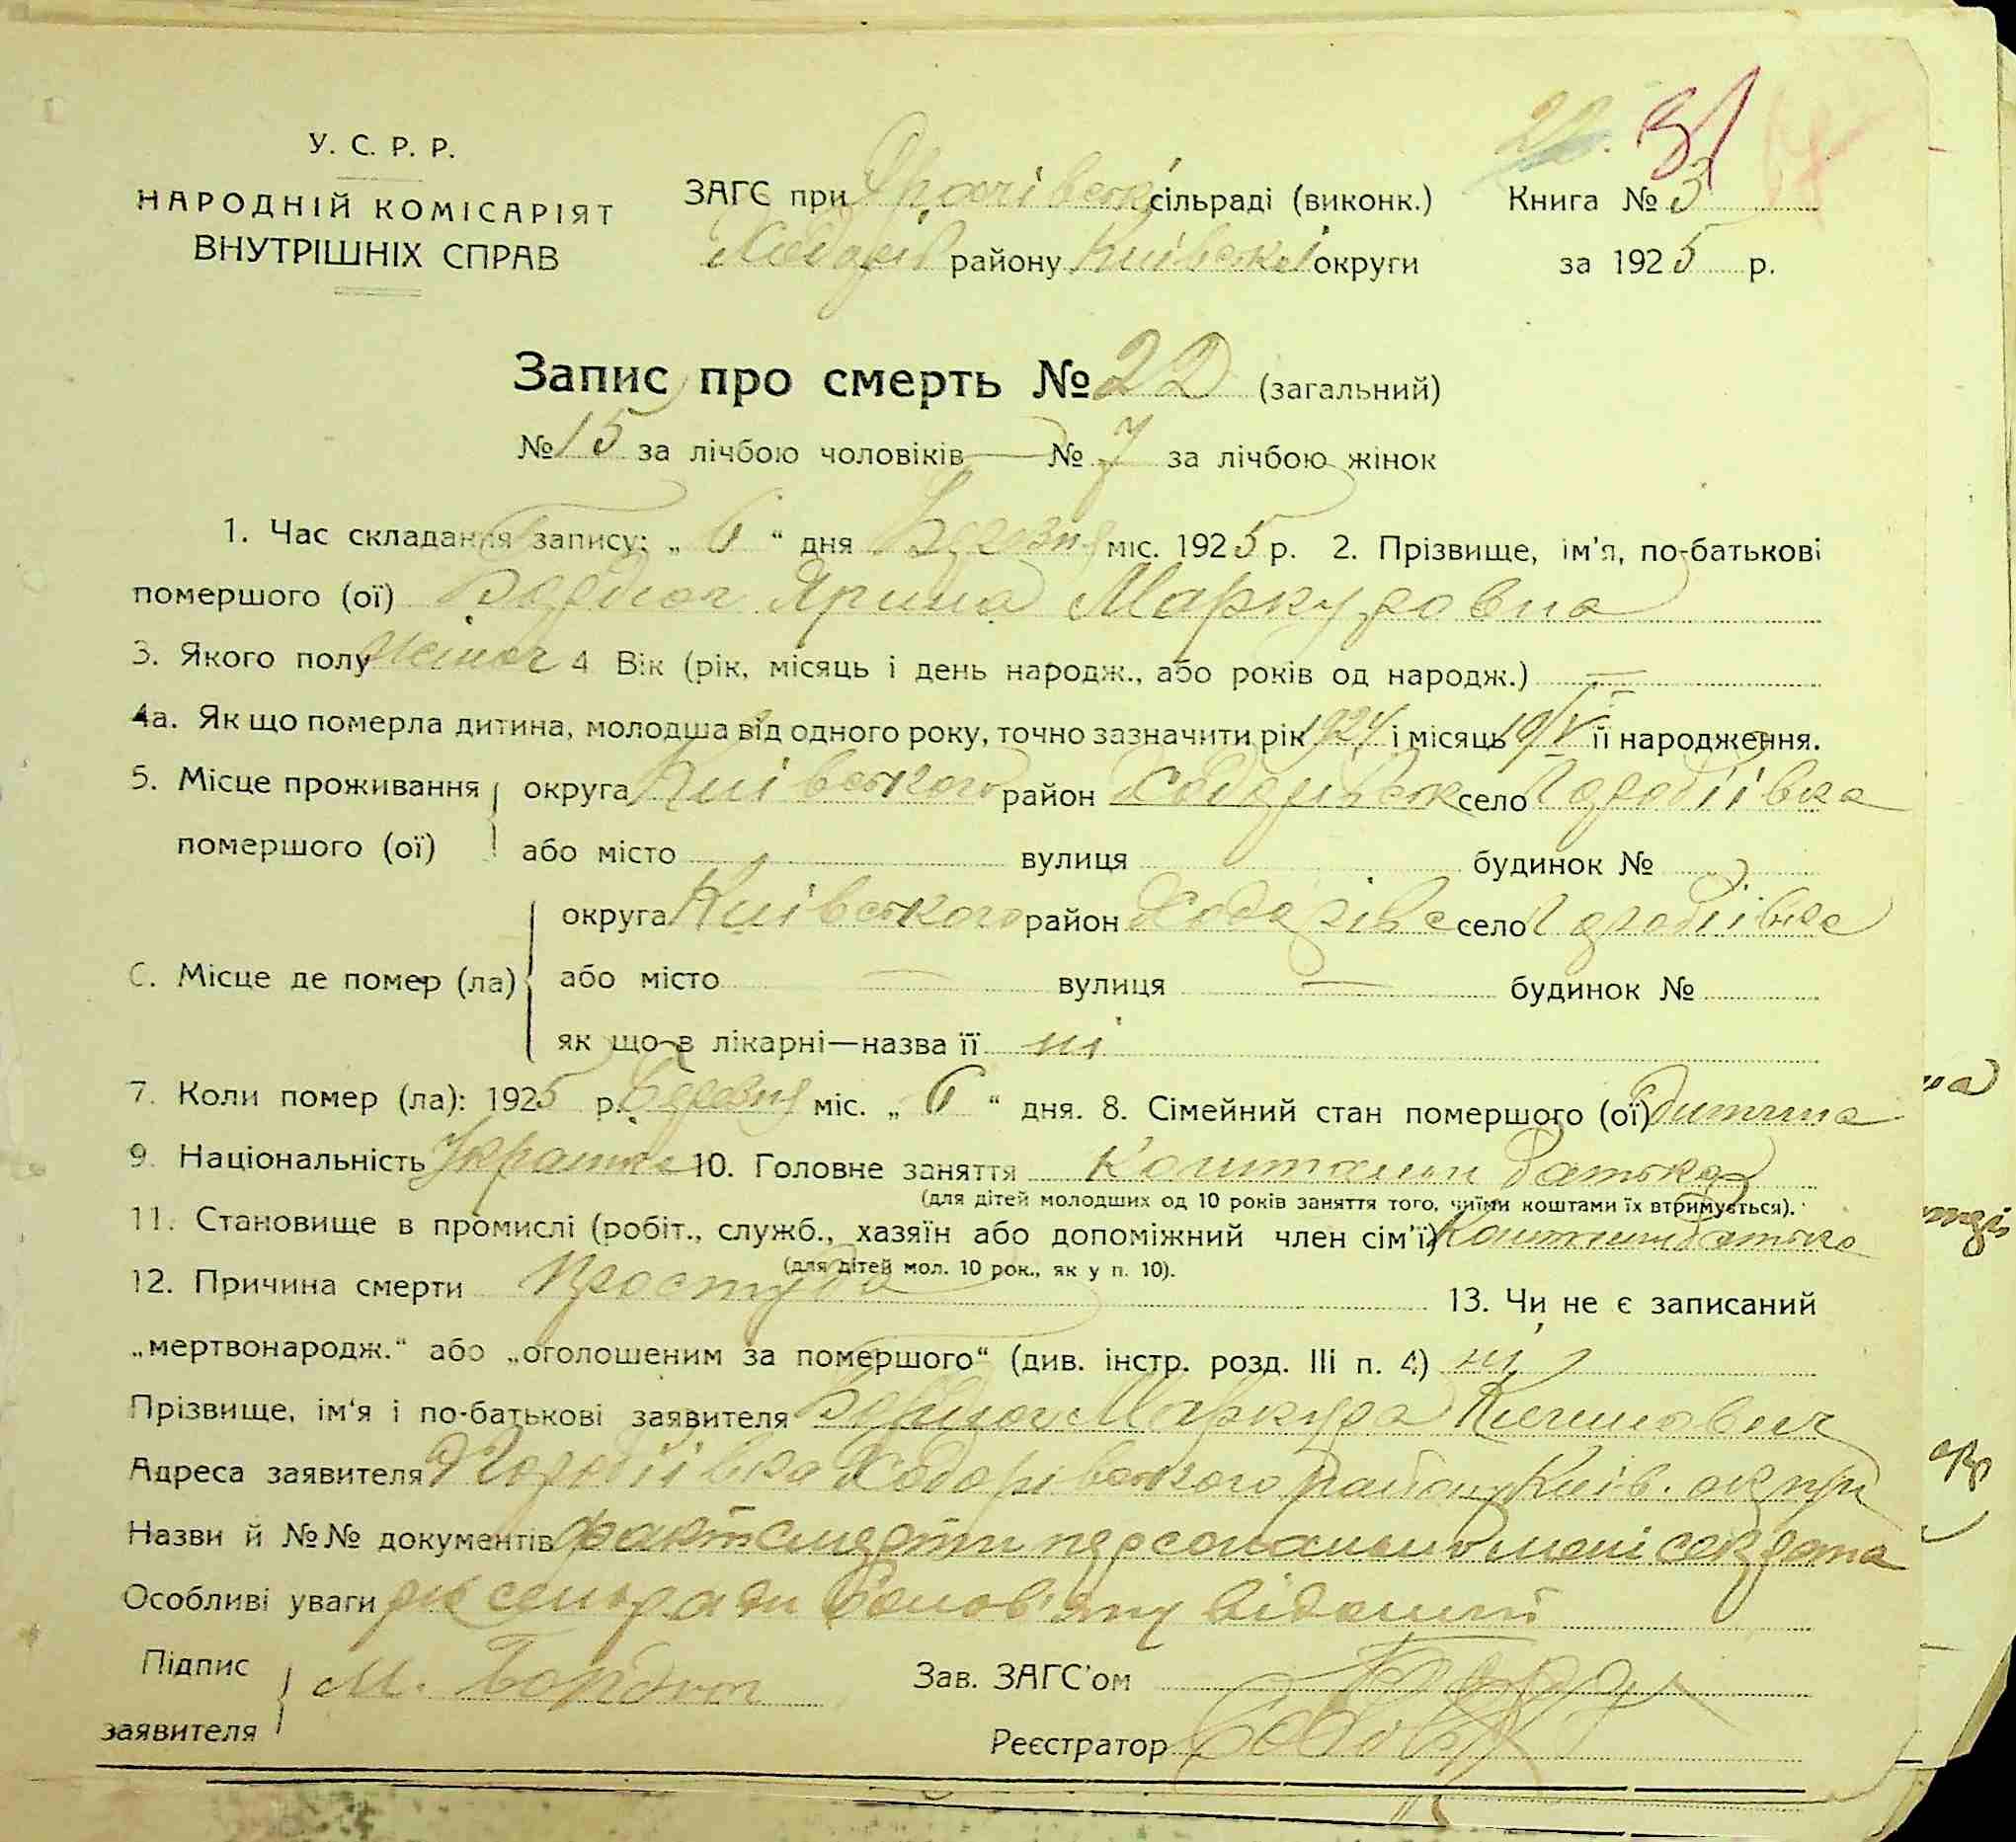 22. 31 68
У. С. Р. Р.
НАРОДНІЙ КОМІСАРІЯТ
ВНУТРІШНІХ СПРАВ
ЗАГС при сільраді (виконк.)
Ходорів району Київської округи
Книга № 3
за 1925 р.
Запис про смерть № 22 (загальний)
№ 15 за лічбою чоловіків — № 7 за лічбою жінок
1. Час складання запису: „ 6 “ дня Березня міс. 1925 р. 2. Прізвище, ім'я, по-батькові
помершого (ої) Ярина Маркуровна
3. Якого полу жіноч 4 Вік (рік, місяць і день народж., або років од народж.) —
4а. Як що померла дитина, молодша від одного року, точно зазначити рік 1924 і місяць 19/V її народження.
5. Місце проживання помершого (ої) округа Київського район село
або місто вулиця будинок №
6. Місце де помер (ла) округа Київського район село
або місто — вулиця — будинок №
як що в лікарні—назва її ні
7. Коли помер (ла): 1925 р. Березня міс. „ 6 “ дня. 8. Сімейний стан помершого (ої) дитина
9. Національність 10. Головне заняття Коштами батька
(для дітей молодших од 10 років заняття того, чиїми коштами їх втримується).
11. Становище в промислі (робіт., служб., хазяїн або допоміжний член сім'ї) Коштами батька
(для дітей мол. 10 рок., як у п. 10).
12. Причина смерти Простуда 13. Чи не є записаний
„мертвонародж.“ або „оголошеним за помершого“ (див. інстр. розд. III п. 4) ні
Прізвище, ім'я і по-батькові заявителя Маркура
Адреса заявителя Ходорівського району Київ. округи
Назви й №№ документів факт смерти персонально мені
Особливі уваги відомий
Підпис заявителя М. Бордюг
Зав. ЗАГС'ом
Реєстратор